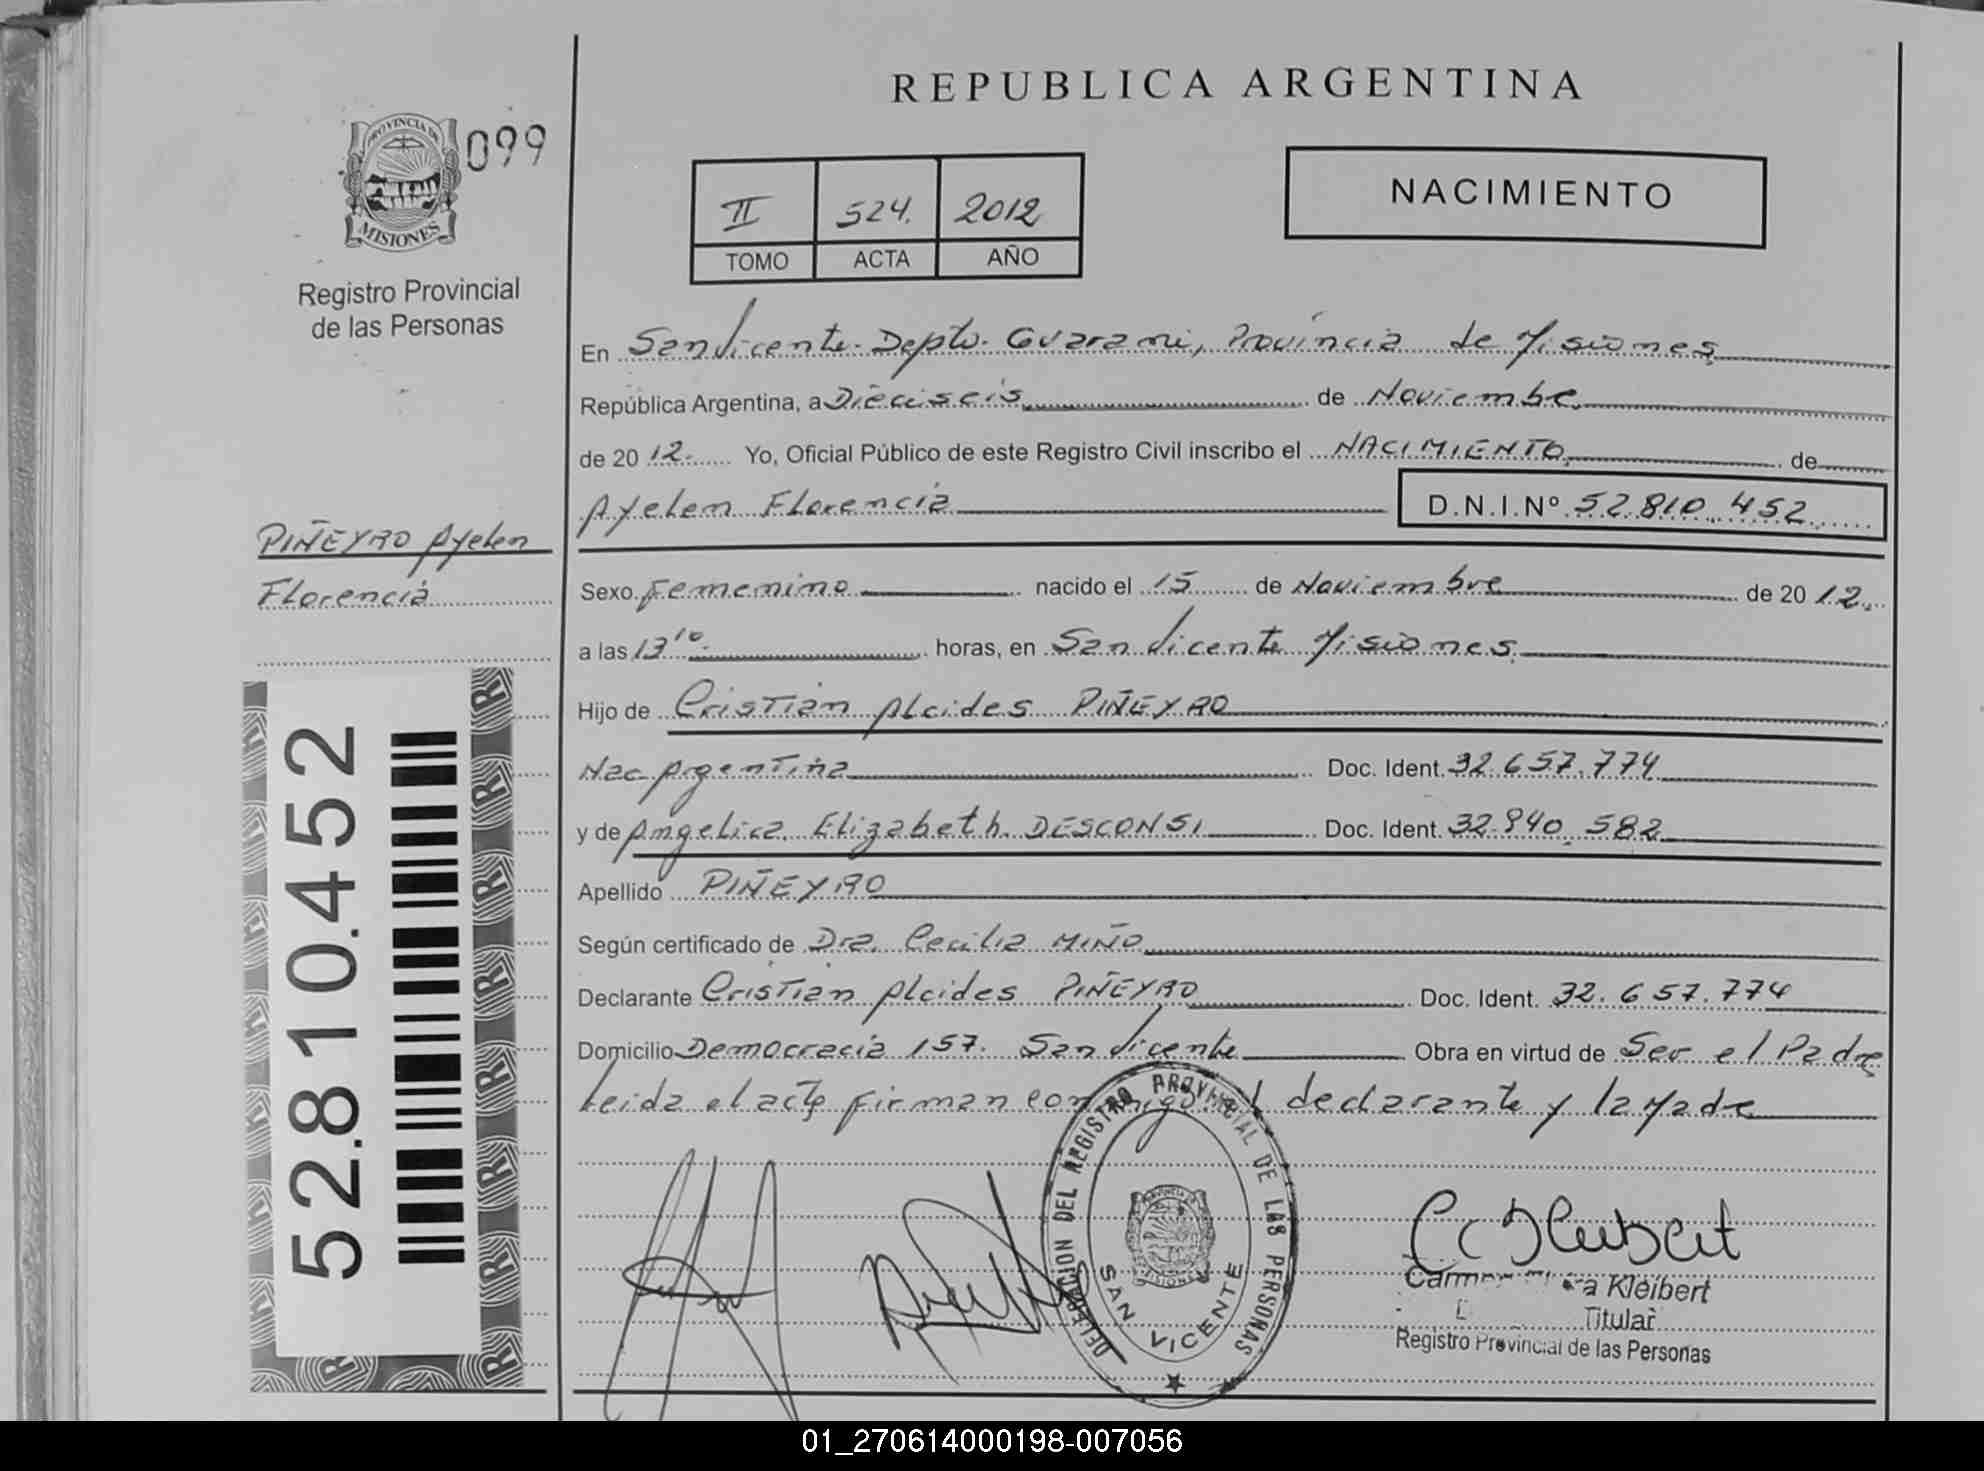 REPUBLICA ARGENTINA
PROVINCIA DE
MISIONES
099
Registro Provincial
de las Personas
II 524. 2012
TOMO ACTA AÑO
NACIMIENTO
En San Vicente. Depto. Guarani, Provincia de Misiones
República Argentina, a Dieciseis de Noviembre
de 20 12. Yo, Oficial Público de este Registro Civil inscribo el NACIMIENTO de
Ayelen Florencia D.N.I.Nº 52.810.452
PIÑEYRO Ayelen
Florencia
Sexo Femenino nacido el 15 de Noviembre de 20 12.
a las 13¹⁰ horas, en San Vicente Misiones
Hijo de Cristian Alcides PIÑEYRO
Nac Argentina Doc. Ident. 32.657.774
y de Angelica Elizabeth DESCONSI Doc. Ident. 32.940.582
Apellido PIÑEYRO
Según certificado de Dra. Cecilia MIÑO
Declarante Cristian Alcides PIÑEYRO Doc. Ident. 32.657.774
Domicilio Democracia 157. San Vicente Obra en virtud de Ser el Padre
Leida el acta firman conmigo el declarante y la Madre
52.810.452
DELEGACION DEL REGISTRO PROVINCIAL DE LAS PERSONAS
SAN VICENTE
Kleibert
Titular
Registro Provincial de las Personas
01_270614000198-007056